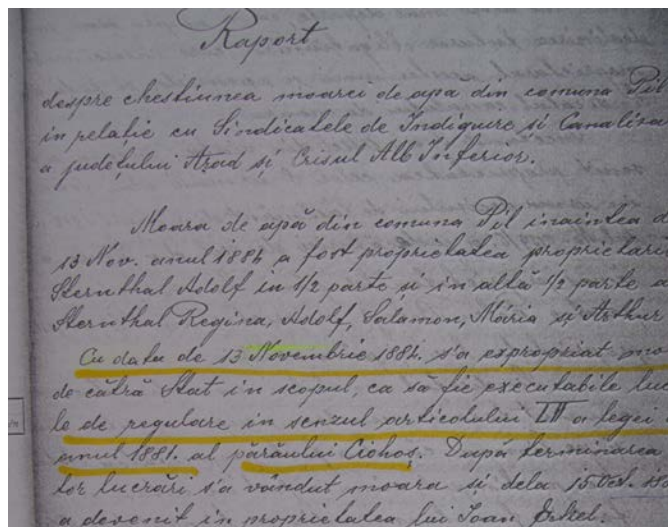 Raport
despre chestiunea moarei de apa din comuna Pil
in relație cu Sindicatele de Indiguire si Canaliza
a județului Arad și Crisul Alb Inferior.
Moara de apă din comuna Pil inaintea d
13 Nov. anul 1884 a fost proprietatea proprietari
Sternthal Adolf in 1/2 parte și in altă 1/2 parte a
Sternthal Regina, Adolf, Salamon, Mária si Arthur
Cu datu de 13 Novembrie 1884. s'a expropriat mo
de cătră Stat in scopul, ca să fie executabile luc
le de regulare in senzul articolului LII a legei
anul 1881. al părăului Ciohoș. După terminarea
lor lucrări s'a vândut moara si dela 15 Oct. 18
a devenit in proprietatea lui Ioan